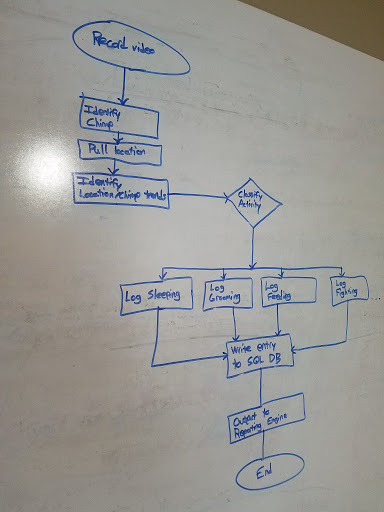 Record video
Identify
Chimp
Pull location
Identify
Location/Chimp trends
Classify
Activity
Log Sleeping
Log
Grooming
Log
Feeding
Log
Fighting
...
Write entry
to SQL DB
Output to
Reporting Engine
End